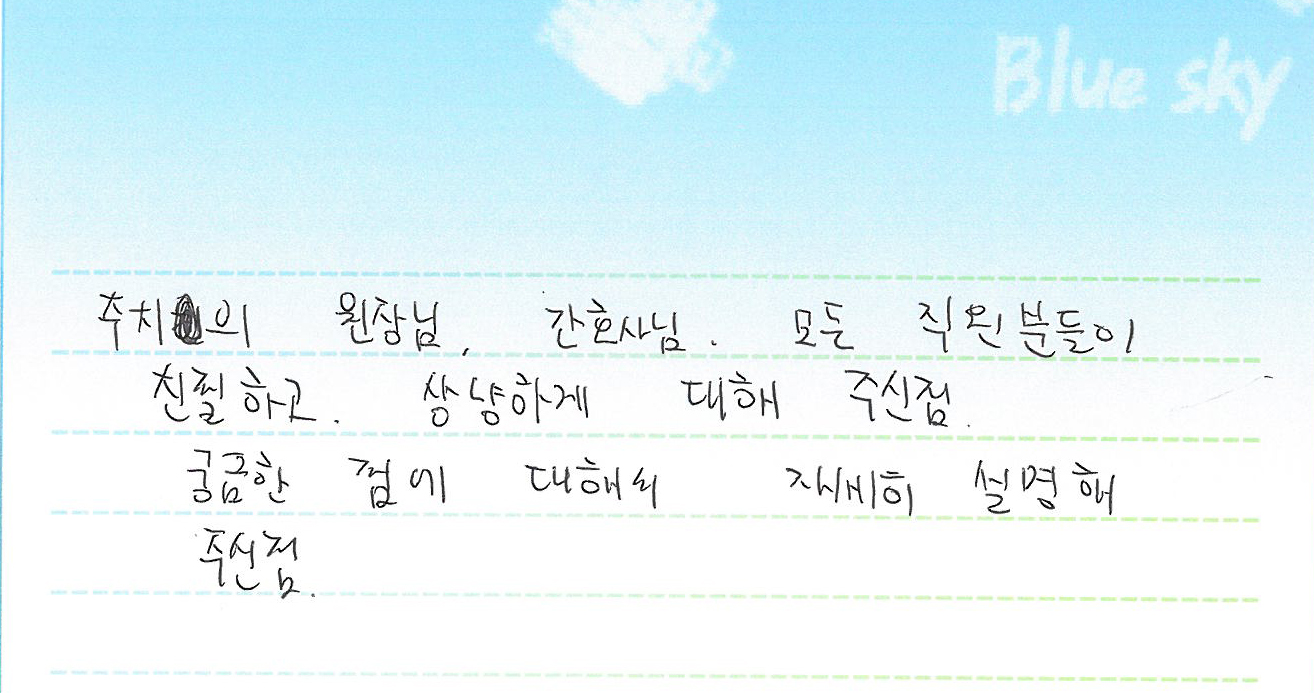 Blue sky
주치의 원장님, 간호사님. 모든 직원분들이
친절하고. 상냥하게 대해 주신점.
궁금한 점에 대해서 자세히 설명해
주신점.